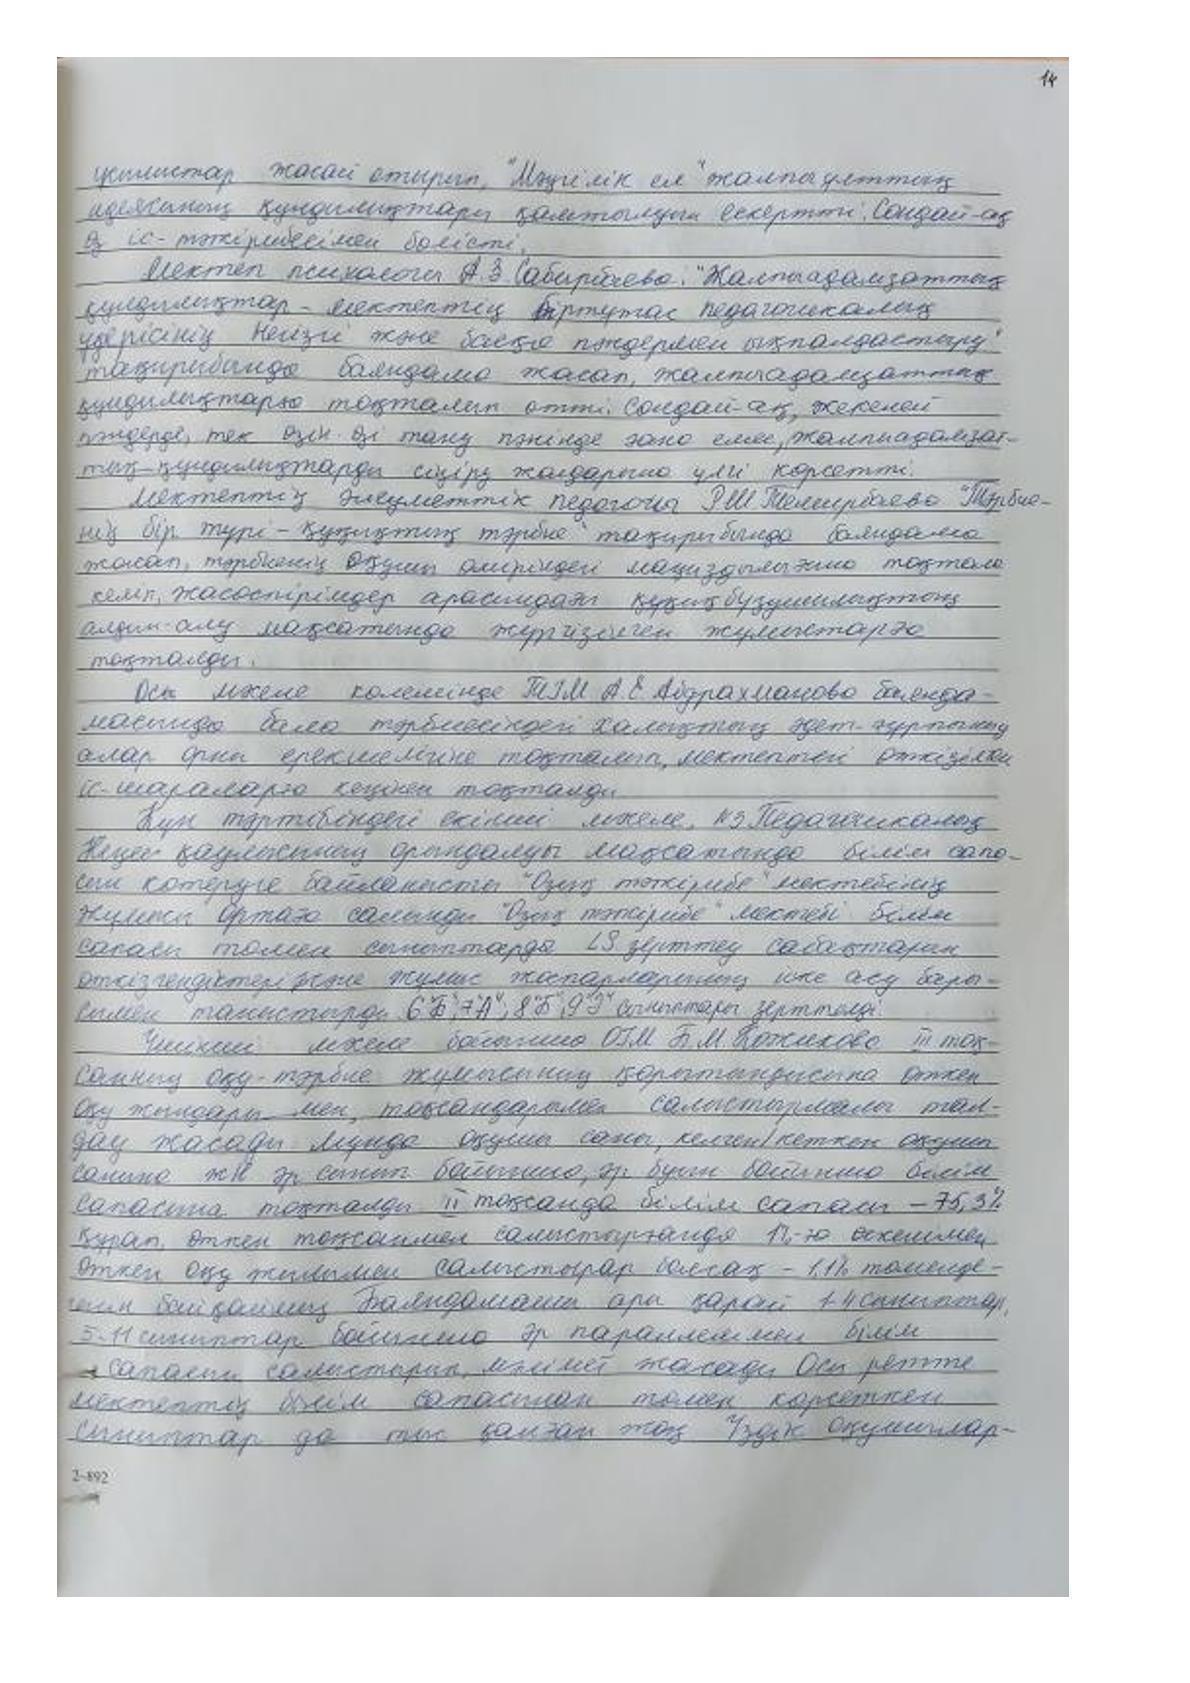 14
жасай отырып, "Мәңгілік ел" жалпыұлттық
идеясының құндылықтары қамтылуын ескертті. Сондай-ақ
өз іс-тәжірибесімен бөлісті.
Мектеп психологы А.З. Сабырбаева: "Жалпыадамзаттық
құндылықтар - мектептің біртұтас педагогикалық
үдерісінің негізі және басқа пәндермен ықпалдастыру"
тақырыбында баяндама жасап, жалпыадамзаттық
құндылықтарға тоқталып өтті. Сондай-ақ, жекелей
пәндерде, тек өзін-өзі тану пәнінде ғана емес, жалпыадамзат-
тық құндылықтарды сіңіру жолдарына үлгі көрсетті.
Мектептің әлеуметтік педагогы Р.Ш Темирбаева "Тәрбие-
нің бір түрі - құқықтық тәрбие" тақырыбында баяндама
жасап, тәрбиенің оқушы өміріндегі маңыздылығына тоқтала
келіп, жасөспірімдер арасындағы құқықбұзушылықтың
алдын-алу мақсатында жүргізілген жұмыстарға
тоқталды.
Осы мәселе көлемінде ТІМ А Е Абдрахманова баянда-
масында бала тәрбиесіндегі халықтың әдет-ғұрпының
алар орны ерекшелігіне тоқталып, мектептегі өткізілген
іс-шараларға кеңінен тоқталды
Күн тәртібіндегі екінші мәселе, №3 Педагогикалық
Кеңес қаулысының орындалуы мақсатында білім сапа-
сын көтеруге байланысты "Озық тәжірибе" мектебінің
жұмысы ортаға салынды "Озық тәжірибе" мектебі білім
сапасы төмен сыныптарда LS зерттеу сабақтарын
өткізгендіктері және жұмыс жоспарларының іске асу бары-
сымен таныстырды 6"Б", 7"А", 8"Б", 9"Ә" сыныптары зерттелді.
Үшінші мәселе бойынша ОІМ Б.М Кожикова III тоқ-
санның оқу-тәрбие жұмысының қорытындысына өткен
оқу жылдары мен, тоқсандарымен салыстырмалы тал-
дау жасады Мұнда оқушы саны, келген/кеткен оқушы
санына әр сынып бойынша, әр буын бойынша білім
сапасына тоқталды II тоқсанда білім сапасы - 75,3%
құрап, өткен тоқсанмен салыстырғанда 1%-ға өскенімен
өткен оқу жылымен салыстырар болсақ - 1,1% төменде-
генін байқаймыз Баяндамашы ары қарай 1-4 сыныптар,
5-11 сыныптар бойынша әр параллельмен білім
сапасын салыстырып, мәлімет жасады Осы ретте
мектептің білім сапасынан төмен көрсеткен
сыныптар да тыс қалған жоқ Үздік оқушылар-
2-892